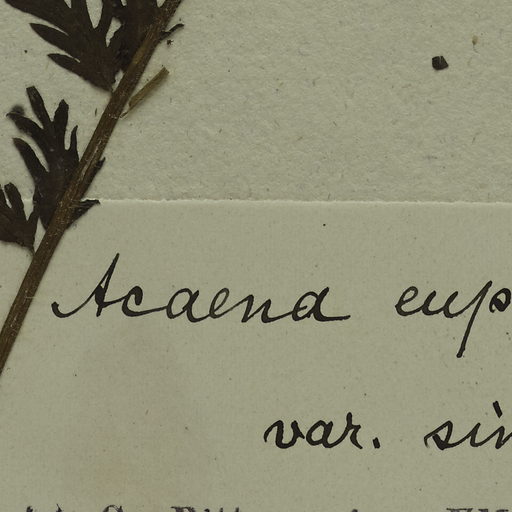 Acaena eup
var. sin